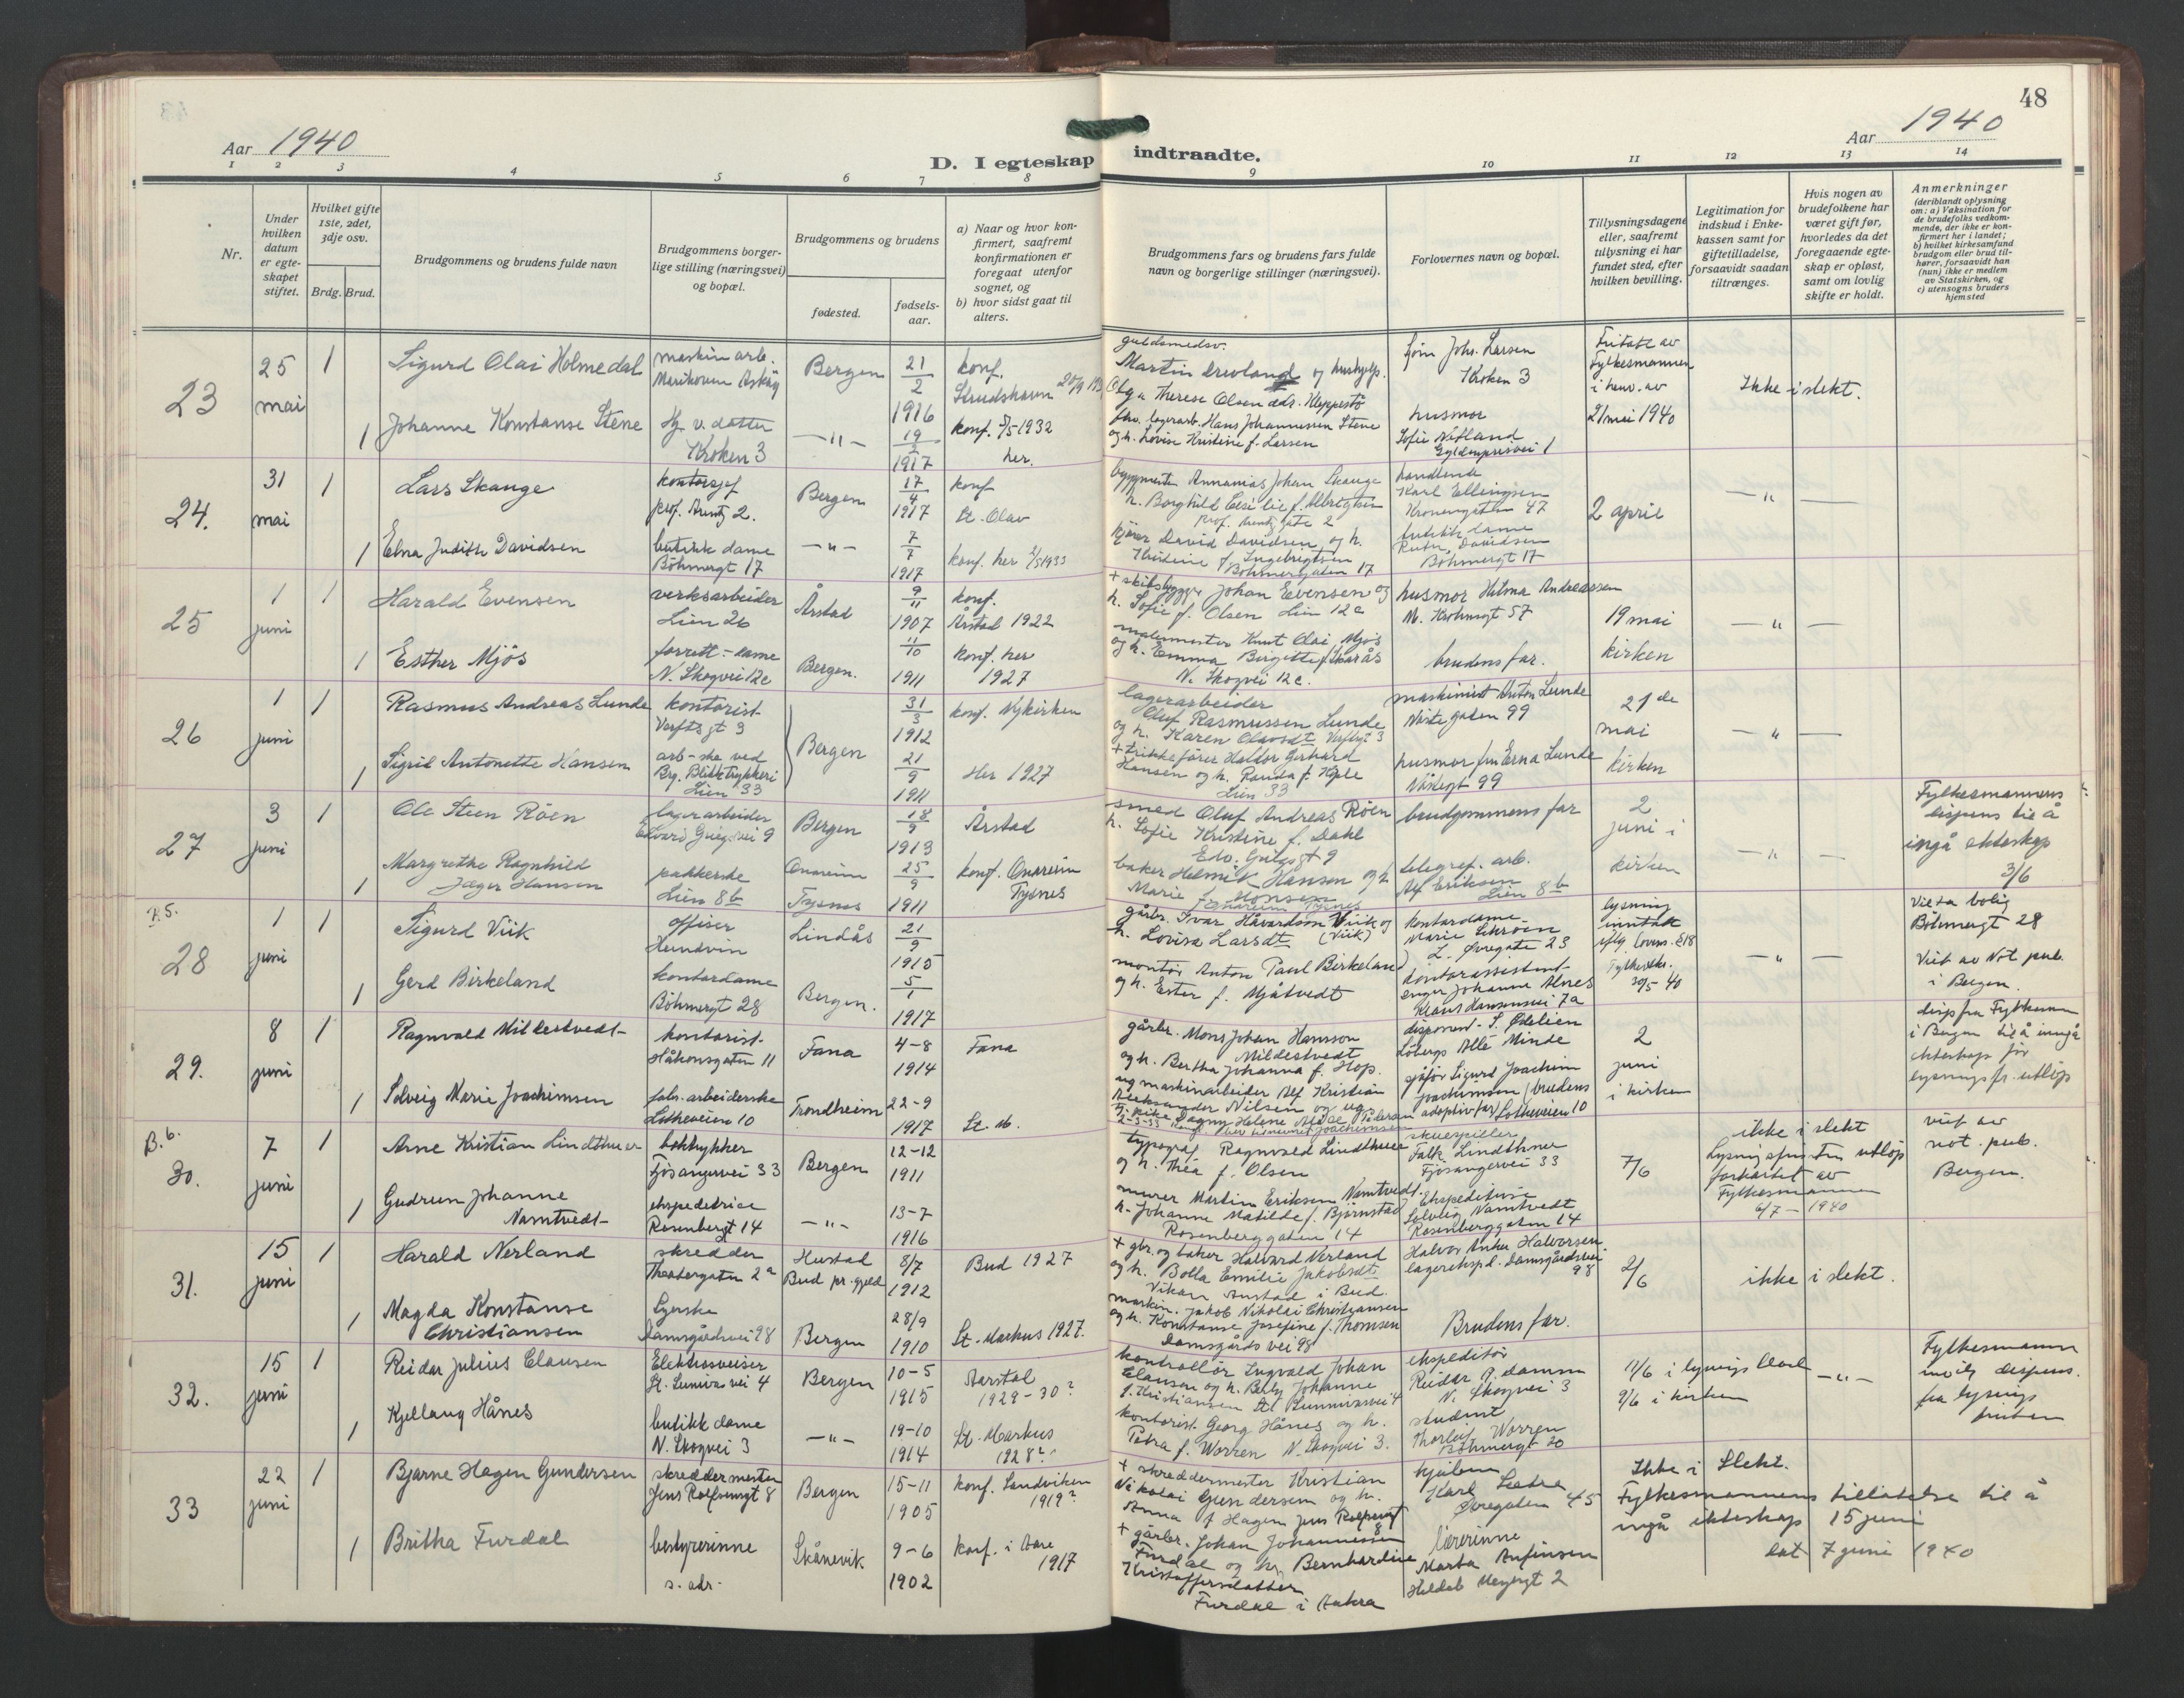 48
Aar 1940
D. I egteskap indtraadte.
Aar 1940
1 2 3 4 5 6 7 8 9 10 11 12 13 14
Nr.
Under hvilken datum er egteskapet stiftet.
Hvilket gifte 1ste, 2det, 3dje osv.
Brdg. Brud.
Brudgommens og brudens fulde navn
Brudgommens borgerlige stilling (næringsvei) og bopæl.
Brudgommens og brudens
fødested.
fødselsaar.
a) Naar og hvor konfirmert, saafremt konfirmationen er foregaat utenfor sognet, og
b) hvor sidst gaat til alters.
Brudgommens fars og brudens fars fulde navn og borgerlige stillinger (næringsvei).
Forlovernes navn og bopæl.
Tillysningsdagene eller, saafremt tillysning ei har fundet sted, efter hvilken bevilling.
Legitimation for indskud i Enkekassen samt for giftetilladelse, forsaavidt saadan tiltrænges.
Hvis nogen av brudefolkene har været gift før, hvorledes da det foregaaende egteskap er opløst, samt om lovlig skifte er holdt.
Anmerkninger
(deriblandt oplysning om: a) Vaksination for de brudefolks vedkommende, der ikke er konfirmert her i landet;
b) hvilket kirkesamfund brudgom eller brud tilhører, forsaavidt han (hun) ikke er medlem av Statskirken, og
c) utensogns bruders hjemsted
23
25 mai
1
Sigurd Olai Holmedal
maskinarb.
Askøy
Bergen
21/2 1916
konf.
1
Johanne Konstanse Stene
Kroken 3
— " —
19/2 1917
konf. 8/5 1932
her.
guldsmedsv.
Martin
Olga Therese Olsen adr. Kleppestø
lagerarb. Hans Johannesen Stene
og h. Lovise Kristine f. Larsen
Johs. Larsen
Kroken 3
husmor
Sofie
Fritatt av
Fylkesmannen
i henv. av
21 mai 1940
Ikke i slekt.
24.
31 mai
1
Lars Skauge
kontorsjef
prof. Arentz 2.
Bergen
17/4 1917
konf
St. Olav
1
Elna Judith Davidsen
butikkdame
Böhmergt 17
— " —
7/7 1917
konf. her 1933
Annanias Johan Skauge
h. Borghild
prof. Arentz gate 2
David Davidsen og h.
Kristine f Ingebrigtsen
Böhmergaten 17
handlende
Karl Ellingsen
47
butikkdame
Ruth Davidsen
Böhmergt 17
2 april
— " —
25
1 juni
1
Harald Evensen
verksarbeider
Lien 26
Årstad
9/11 1907
konf.
Årstad 1922
1
Esther Mjös
forrett.-dame
N. Skogvei 12c
Bergen.
11/10 1911
konf. her
1927
+ skibsbygger Johan Evensen og
h. Sofie f. Olsen Lien 12a
malermester Knut Olai Mjös
og h. Emma Birgitte f. Skarås
N. Skogvei 12c.
husmor Hilma Andreassen
M. Krohnsgt 57
brudens far.
19 mai
kirken
— " —
26
1 juni
1
Rasmus Andreas Lunde
kontorist
Verftsgt 3
Bergen
31/3 1912
konf. Nykirken
1
Sigrid Antonette Hansen
arb-ske ved
Brg. Blikktrykkeri
Lien 33
21/9 1911
Her 1927
lagerarbeider
Oluf Rasmussen Lunde
og h. Karen Olavsdt Verftsgt 3
+ trikkefører Haldor Gerhard
Hansen og h. Randa f.
Lien 33
maskinist Anton Lunde
Nöstegaten 99
husmor fru Erna Lunde
Nöstegt 99
21 de
mai
kirken
— " —
27
3 juni
1
Ole Steen Röen
lagerarbeider
Edvard Griegsvei 9
Bergen
18/9 1913
Årstad
1
Margrethe Ragnhild
Jæger Hansen
pakkerske
Lien 8b
Onarheim
Tysnes
25/9 1911
konf. Onareim
Tysnes
smed Oluf Andreas Röen
h. Sofie Kristine f. Dahl
baker Henrik Hansen og h
Marie f. Monsen
brudgommens far
telegraf. arb.
Alf Eriksen
Lien 8b
2
juni i
kirken
— " —
Fylkesmannens
dispens til å
ingå ekteskap
3/6
28
1 juni
1
Sigurd Viik
offiser
Lindås
21/9 1915
1
Gerd Birkeland
kontordame
Böhmergt 28
Bergen.
5/1 1917
gårbr. Ivar Håvardson Viik og
h. Lovisa Larsdt (Viik)
montör Anton Paul Birkeland
og h. Ester f. Mjåtvedt
kontordame
Marie
L. Øvregate 23
kontorassistent
Johanne Alnes
7a
lysning
inntatt
30/5 40
— " —
Vielsa bolig
Böhmergt 28
Viet av Not. pub.
i Bergen.
29.
8 juni
1
Ragnvald Mildestvedt
kontorist
Håkonsgaten 11
Fana
4-8
1914
Fana
1
Solveig Marie Joachimsen
fabr. arbeiderske
Lotheveien 10
Trondheim
22-9
1917
St. M.
gårbr. Mons Johan Hansson
Mildestvedt
og h. Bertha Johanna f. Hop.
ug maskinarbeider Alf Kristian
Aleksander Nilsen og ug.
disponent S. Ødelien
Løbergs Allé Minde
sjåfør Sigurd Joachim
Joachimsen (brudens
adoptivfar) Lotheveien 10
2
juni
i kirken
disp fra Fylkesmn
i Bergen til å inngå
ekteskap før
lysningsfr. utløp
B. 6.
30.
7 juni
1
Arne Kristian Lindthuer
boktrykker
Fjösangervei 33
Bergen
12-12
1911
1
Gudrun Johanne
Namtvedt
ekspeditrise
Rosenbergt 14
— " —
13-7
1916
typograf Ragnvald Lindthuer
og h. Thea f. Olsen
murer Martin Eriksen Namtvedt
h. Johanne Matilde f. Björnstad
Rosenberggaten 14
skuespiller
Falk Lindthuer
Fjösangervei 33
Ekspeditrise
Solveig Namtvedt
Rosenberggaten 14
7/6
ikke i slekt
utløp
forkortet av
Fylkesmannen
6/7 — 1940
viet av
not. pub.
Bergen.
31.
15 juni
1
Harald Nerland
skredder
Theatergaten 2a
Hustad
Bud pr.gjeld
8/7 1912
Bud 1927
1
Magda Konstanse
Christiansen
Syerske
Damsgårdsvei 98
Bergen
28/9 1910
St. Markus 1927.
+ gbr. og baker Halvard Nerland
og h. Bolla Emilie Jakobsdt
i Bud.
maskin. Jakob Nikolai Christiansen
og h. Konstanse Josefine f. Thomsen
Damsgårdsvei 98
Halvor Anker Halvorsen
lagerekspd. Damsgårdsvei
98
Brudens far.
2/6
ikke i slekt.
32.
15 juni
1
Reidar Julius Clausen
Elektrosveiser
St. Sunnivas vei 4
Bergen
10-5
1915
Aarstad
1929-30?
1
Kjellaug Hånes
butikkdame
N. Skogvei 3
— " —
19-10
1914
St. Markus
1928?
kontrollör Ingvald Johan
Clausen og h. Johanne
f. Kristiansen St. Sunnivasvei 4
kontorist Georg Hånes og h.
Petra f. Worren N. Skogvei 3.
ekspeditör
Reidar
N. Skogvei 3
student
Thorleif Worren
Böhmergt 20
11/6 i
9/6 i kirken
— " —
Fylkesmann
dispens.
fra lysnings
fristen
33
22 juni
1
Bjarne Hagen Gundersen
skreddermester
Jens Rolfsensgt 8
Bergen
15-11
1905
konf. Sandviken
1919?
1
Britha Furdal
bestyrerinne
s. adr.
Skånevik
9-6
1902
konf. i
1917
+ skreddermester Kristian
Nikolai Gundersen og h.
Anna f Hagen Jens Rolfsensgt
8
+ gårbr. Johan Johannessen
Furdal og h. Bernhardine
Kristoffersdatter
Furdal i Aakra
Karl
Øvregaten 45
lærerinne
Marta Anfinsen
Ikke i Slekt.
Fylkesmannens tillatelse til å
ingå ekteskap 15 juni
dat 7 juni 1940